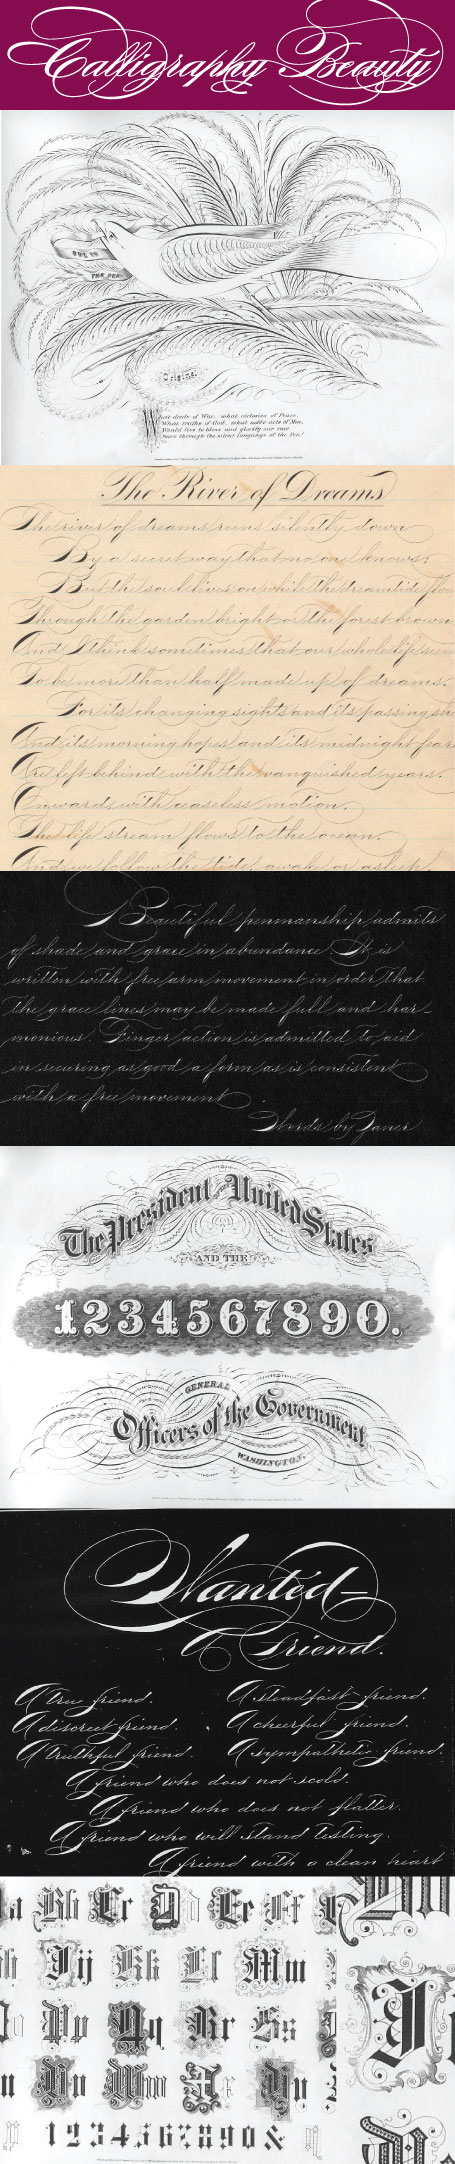 Calligraphy Beauty
ODE TO
THE PEN
Original.
What deeds of War, what victories of Peace,
What truths of God, what noble acts of Men,
Would live to bless and glorify our race
Save through the silent language of the Pen!
The River of Dreams
The river of dreams runs silently down
By a secret way that no one knows;
But the soul lives on while the dreamtide flow
Through the garden bright or the forest brown
And I think sometimes that our whole life seem
To be more than half made up of dreams.
For its changing sights and its passing sh
And its morning hopes and its midnight fears
Are left behind with the vanquished years.
Onward, with ceaseless motion,
The life stream flows to the ocean.
And we follow the tide, awake or asleep
Beautiful penmanship admits
of shade and grace in abundance. It is
written with free arm movement in order that
the grace lines may be made full and har-
monious. Finger action is admitted to aid
in securing as good a form as is consistent
with a free movement.
Words by Zaner
The President of the United States
AND THE
1234567890.
GENERAL
Officers of the Government
WASHINGTON.
Wanted—
A Friend.
A true friend. A steadfast friend.
A discreet friend. A cheerful friend.
A truthful friend. A sympathetic friend.
A friend who does not scold.
A friend who does not flatter.
A friend who will stand testing.
A friend with a clean heart
a Bb Cc Dd Ee Ff
Ij Kk Ll Mm
Pp Qq Rr Ss
Ww Xx Yy
1234567890&